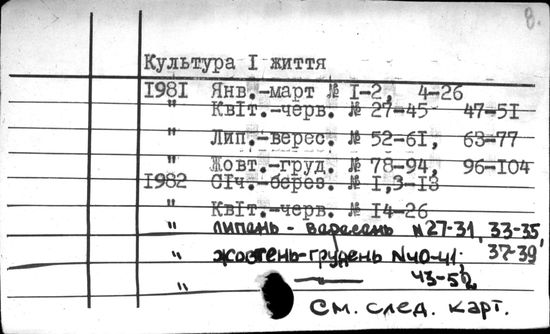 8.
Культура І життя
1981 Янв.-март № 1-2, 4-26
" Квіт.-черв. № 27-45 47-51
" Лип.-верес. № 52-61, 63-77
" Жовт.-груд. № 78-94, 96-104
1982 Січ.-берез. № 1,3-13
" Квіт.-черв. № 14-26
" липень - вересень N27-31, 33-35,
37-39
" жовтень-грудень N40-41;
" —"— 43-52
См. след. карт.